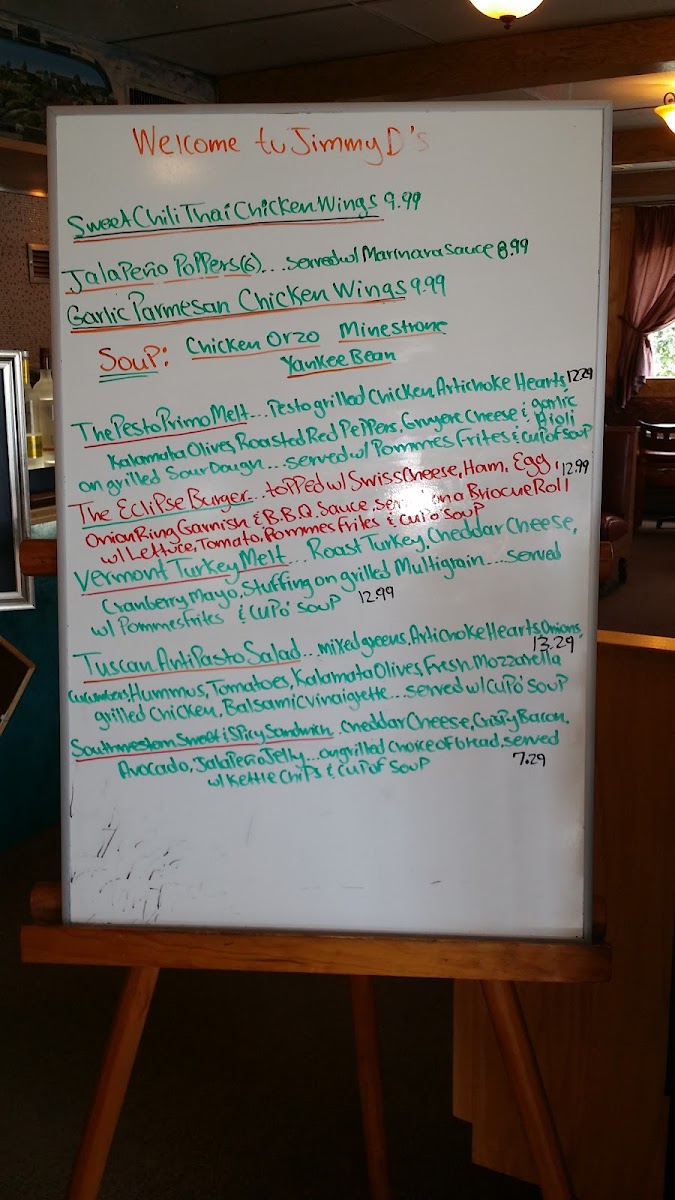 Welcome to Jimmy D's
Sweet Chili Thai Chicken Wings 9.99
Jalapeño Poppers (6)...served w/ Marinara Sauce 8.99
Garlic Parmesan Chicken Wings 9.99
Soup: Chicken Orzo Minestrone
Yankee Bean
The Pesto Primo Melt... Pesto grilled Chicken, Artichoke Hearts, 12.29
Kalamata Olives, Roasted Red Peppers, Gruyere Cheese & garlic Aioli
on grilled Sour Dough... served w/ Pommes Frites & cup of soup
The Eclipse Burger... topped w/ Swiss Cheese, Ham, Egg, 12.99
Onion Ring Garnish & B.B.Q. Sauce, on a Briocue Roll
w/ Lettuce, Tomato, Pommes frites & cup o' soup
Vermont Turkey Melt... Roast Turkey, Cheddar Cheese,
Cranberry Mayo, Stuffing on grilled Multigrain.... served
w/ Pommes frites & cup o' soup 12.99
Tuscan AntiPasto Salad... mixed greens, Artichoke Hearts, Onions, 13.29
Cucumbers, Hummus, Tomatoes, Kalamata Olives, Fresh Mozzarella
grilled Chicken, Balsamic Vinaigrette... served w/ cup o' soup
Southwestern Sweet & Spicy Sandwich. Cheddar Cheese, Crispy Bacon,
Avocado, Jalapeño Jelly... on grilled choice of bread, served
w/ Kettle Chips & cup of soup 7.29